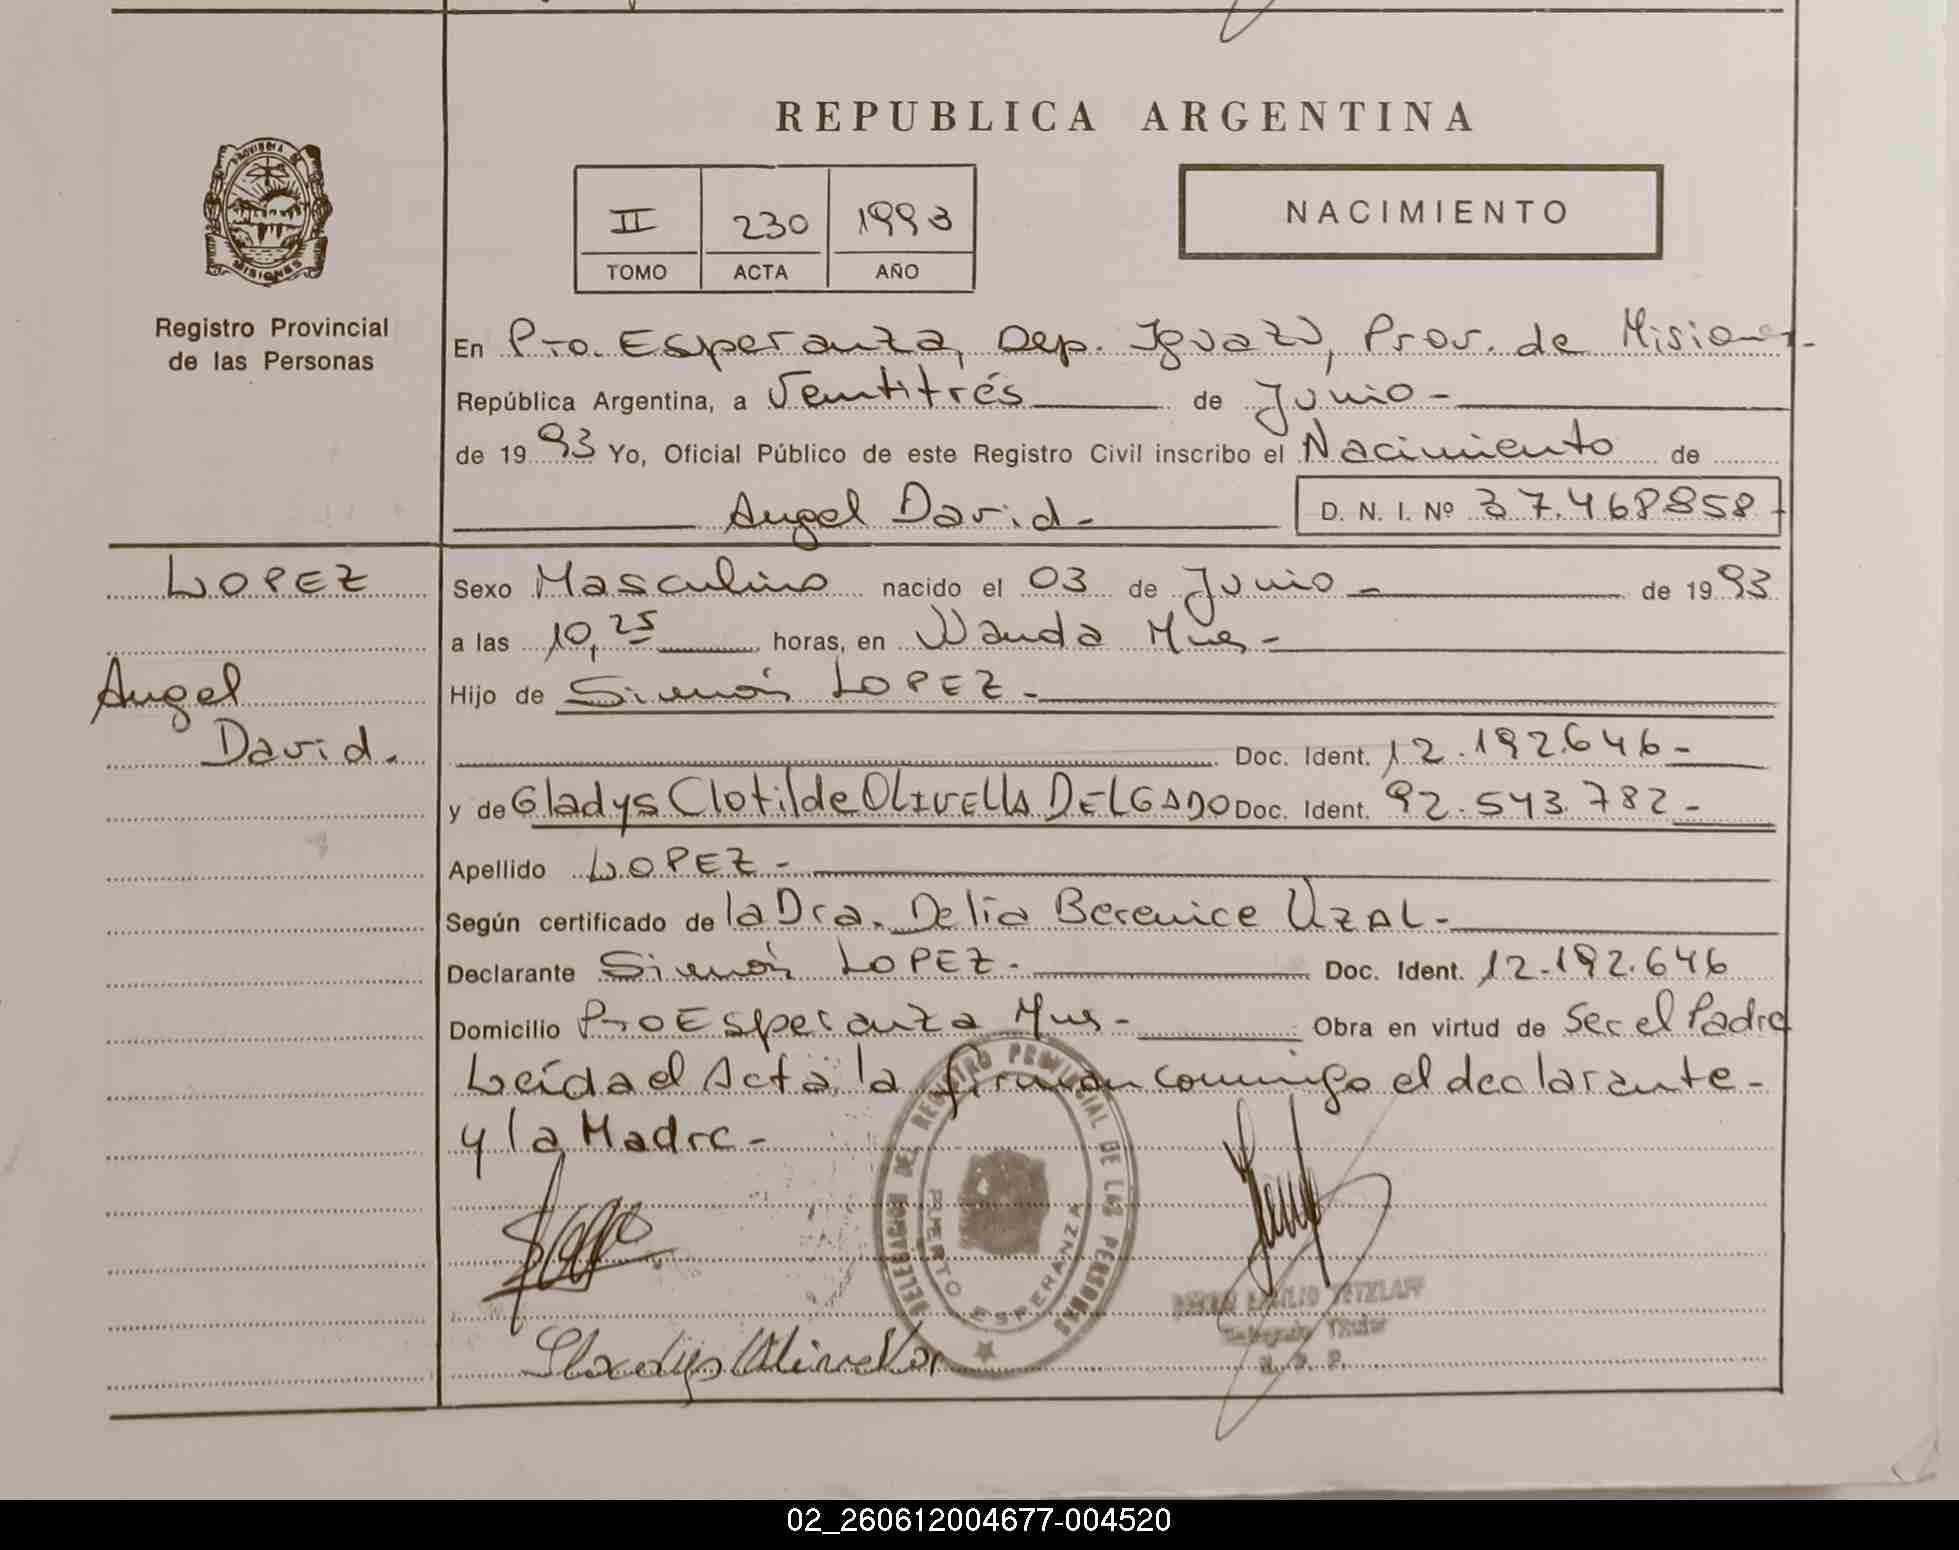 REPUBLICA ARGENTINA
PROVINCIA DE
MISIONES
Registro Provincial
de las Personas
II 230 1993
TOMO ACTA AÑO
NACIMIENTO
En Pto. Esperanza, Dep. Iguazú, Prov. de Misiones-
República Argentina, a Veintitrés de Junio-
de 1993 Yo, Oficial Público de este Registro Civil inscribo el Nacimiento de
Angel David- D. N. I. Nº 37.468858-
LOPEZ
Angel
David.
Sexo Masculino nacido el 03 de Junio- de 1993
a las 10,25 horas, en Wanda Mnes-
Hijo de Simón LOPEZ-
Doc. Ident. 12.192.646-
y de Gladys Clotilde OLIVELLA DELGADO Doc. Ident. 92.543.782-
Apellido LOPEZ-
Según certificado de la Dra. Delia Berenice UZAL-
Declarante Simón LOPEZ- Doc. Ident. 12.192.646
Domicilio Pto Esperanza Mnes- Obra en virtud de Ser el Padre
Leída el Acta, la firman conmigo el declarante-
y la Madre-
DELEGACION DEL REGISTRO PROVINCIAL DE LAS PERSONAS
PUERTO ESPERANZA
EMILIO TETZLAFF
Delegado Titular
Gladys
02_260612004677-004520